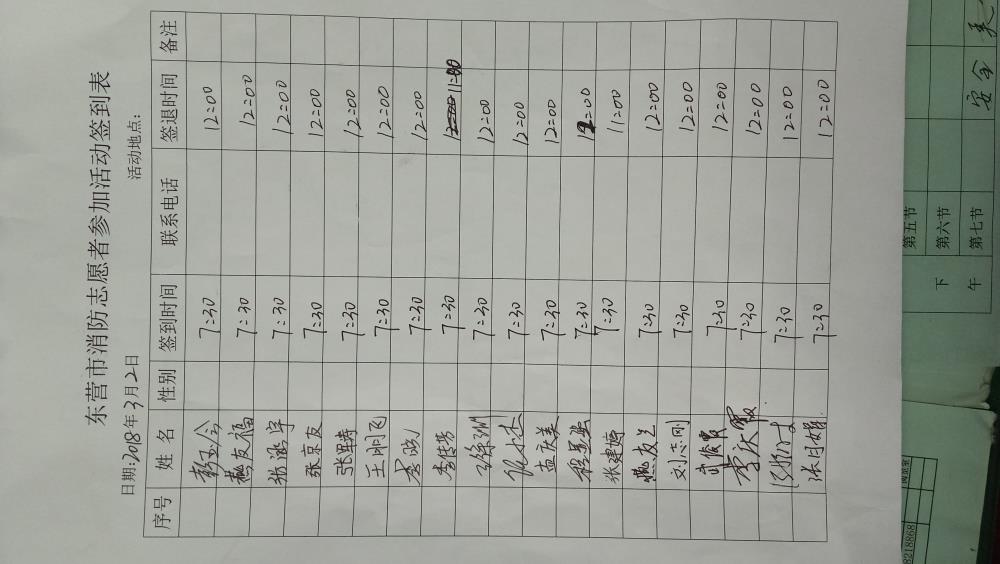 东营市消防志愿者参加活动签到表
日期:2018年3月2日 活动地点:
序号 姓 名 性别 签到时间 联系电话 签退时间 备注
7:30 12:00
燕友福 7:30 12:00
7:30 12:00
张京友 7:30 12:00
7:30 12:00
王明飞 7:30 12:00
李晓 7:30 12:00
7:30 11:00
徐洲 7:30 12:00
7:30 12:00
孟庆美 7:30 12:00
程显强 7:30 12:00
张建婷 7:30 11:00
燕友兰 7:30 12:00
刘志刚 7:30 12:00
7:30 12:00
李庆军 7:30 12:00
7:30 12:00
张月娟 7:30 12:00
第五节
下 第六节
午 第七节 安全 美
8218868